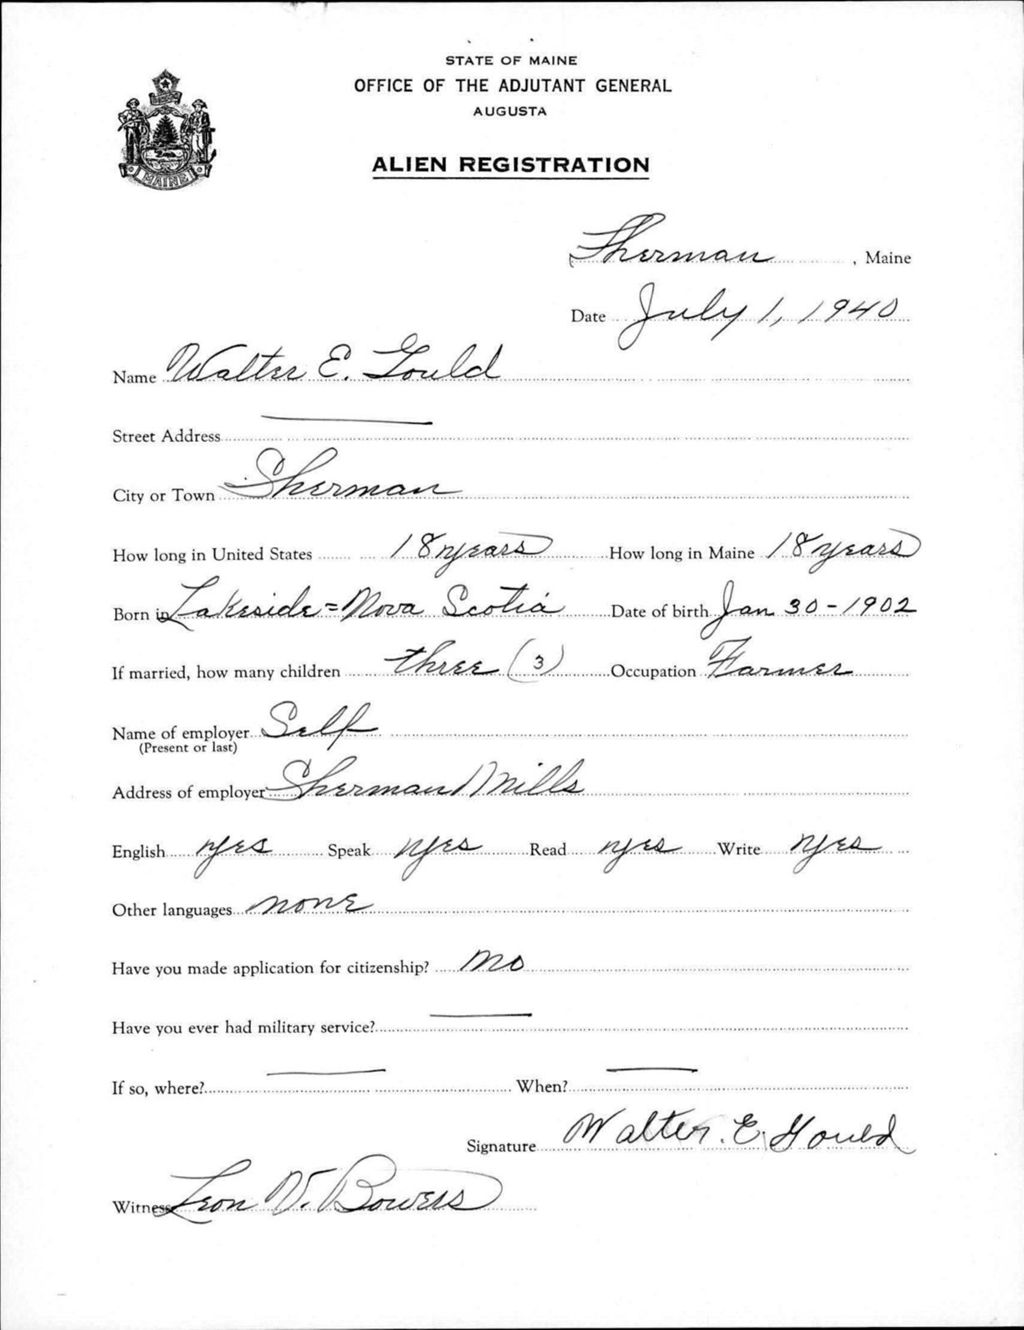 STATE OF MAINE
OFFICE OF THE ADJUTANT GENERAL
AUGUSTA
ALIEN REGISTRATION
MAINE
Sherman, Maine
Date July 1, 1940
Name Walter E. Gould
Street Address
City or Town Sherman
How long in United States 18 years How long in Maine 18 years
Born in Lakeside = Nova Scotia Date of birth Jan 30 - 1902
If married, how many children three (3) Occupation Farmer
Name of employer Self
(Present or last)
Address of employer Sherman Mills
English yes Speak yes Read yes Write yes
Other languages none
Have you made application for citizenship? no
Have you ever had military service?
If so, where? When?
Signature Walter. E. Gould
Witness Leon V. Bowers